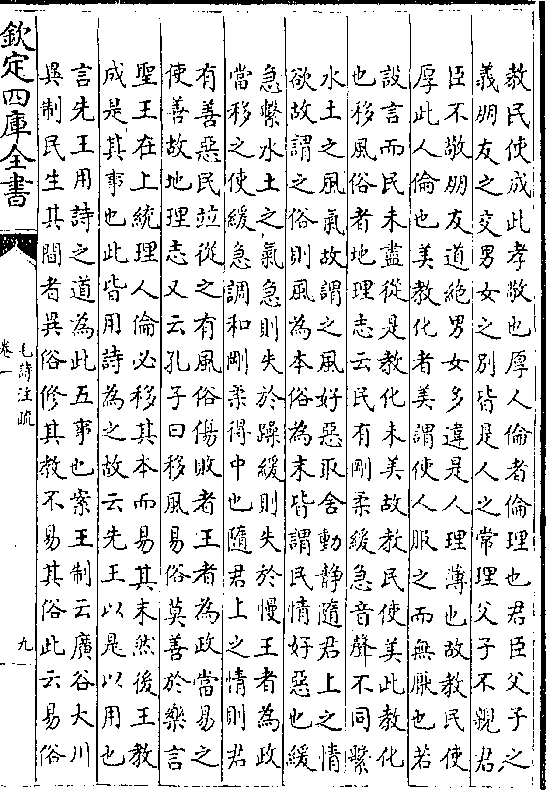 教民使成此孝敬也厚人倫者倫理也君臣父子之
義朋友之交男女之別皆是人之常理父子不親君
臣不敬朋友道絶男女多違是人理薄也故教民使
厚此人倫也美教化者美謂使人服之而無厭也若
設言而民未盡從是教化未美故教民使美此教化
也移風俗者地理志云民有剛柔緩急音聲不同繫
水土之風氣故謂之風好惡取舍動静隨君上之情
欲故謂之俗則風為本俗為末皆謂民情好惡也緩
急繫水土之氣急則失於躁緩則失於慢王者為政
當移之使緩急調和剛柔得中也隨君上之情則君
有善惡民並從之有風俗傷敗者王者為政當易之
使善故地理志又云孔子曰移風易俗莫善於樂言
聖王在上統理人倫必移其本而易其末然後王教
成是其事也此皆用詩為之故云先王以是以用也
言先王用詩之道為此五事也案王制云廣谷大川
異制民生其間者異俗修其教不易其俗此云易俗
欽定四庫全書
毛詩注疏
卷一
九